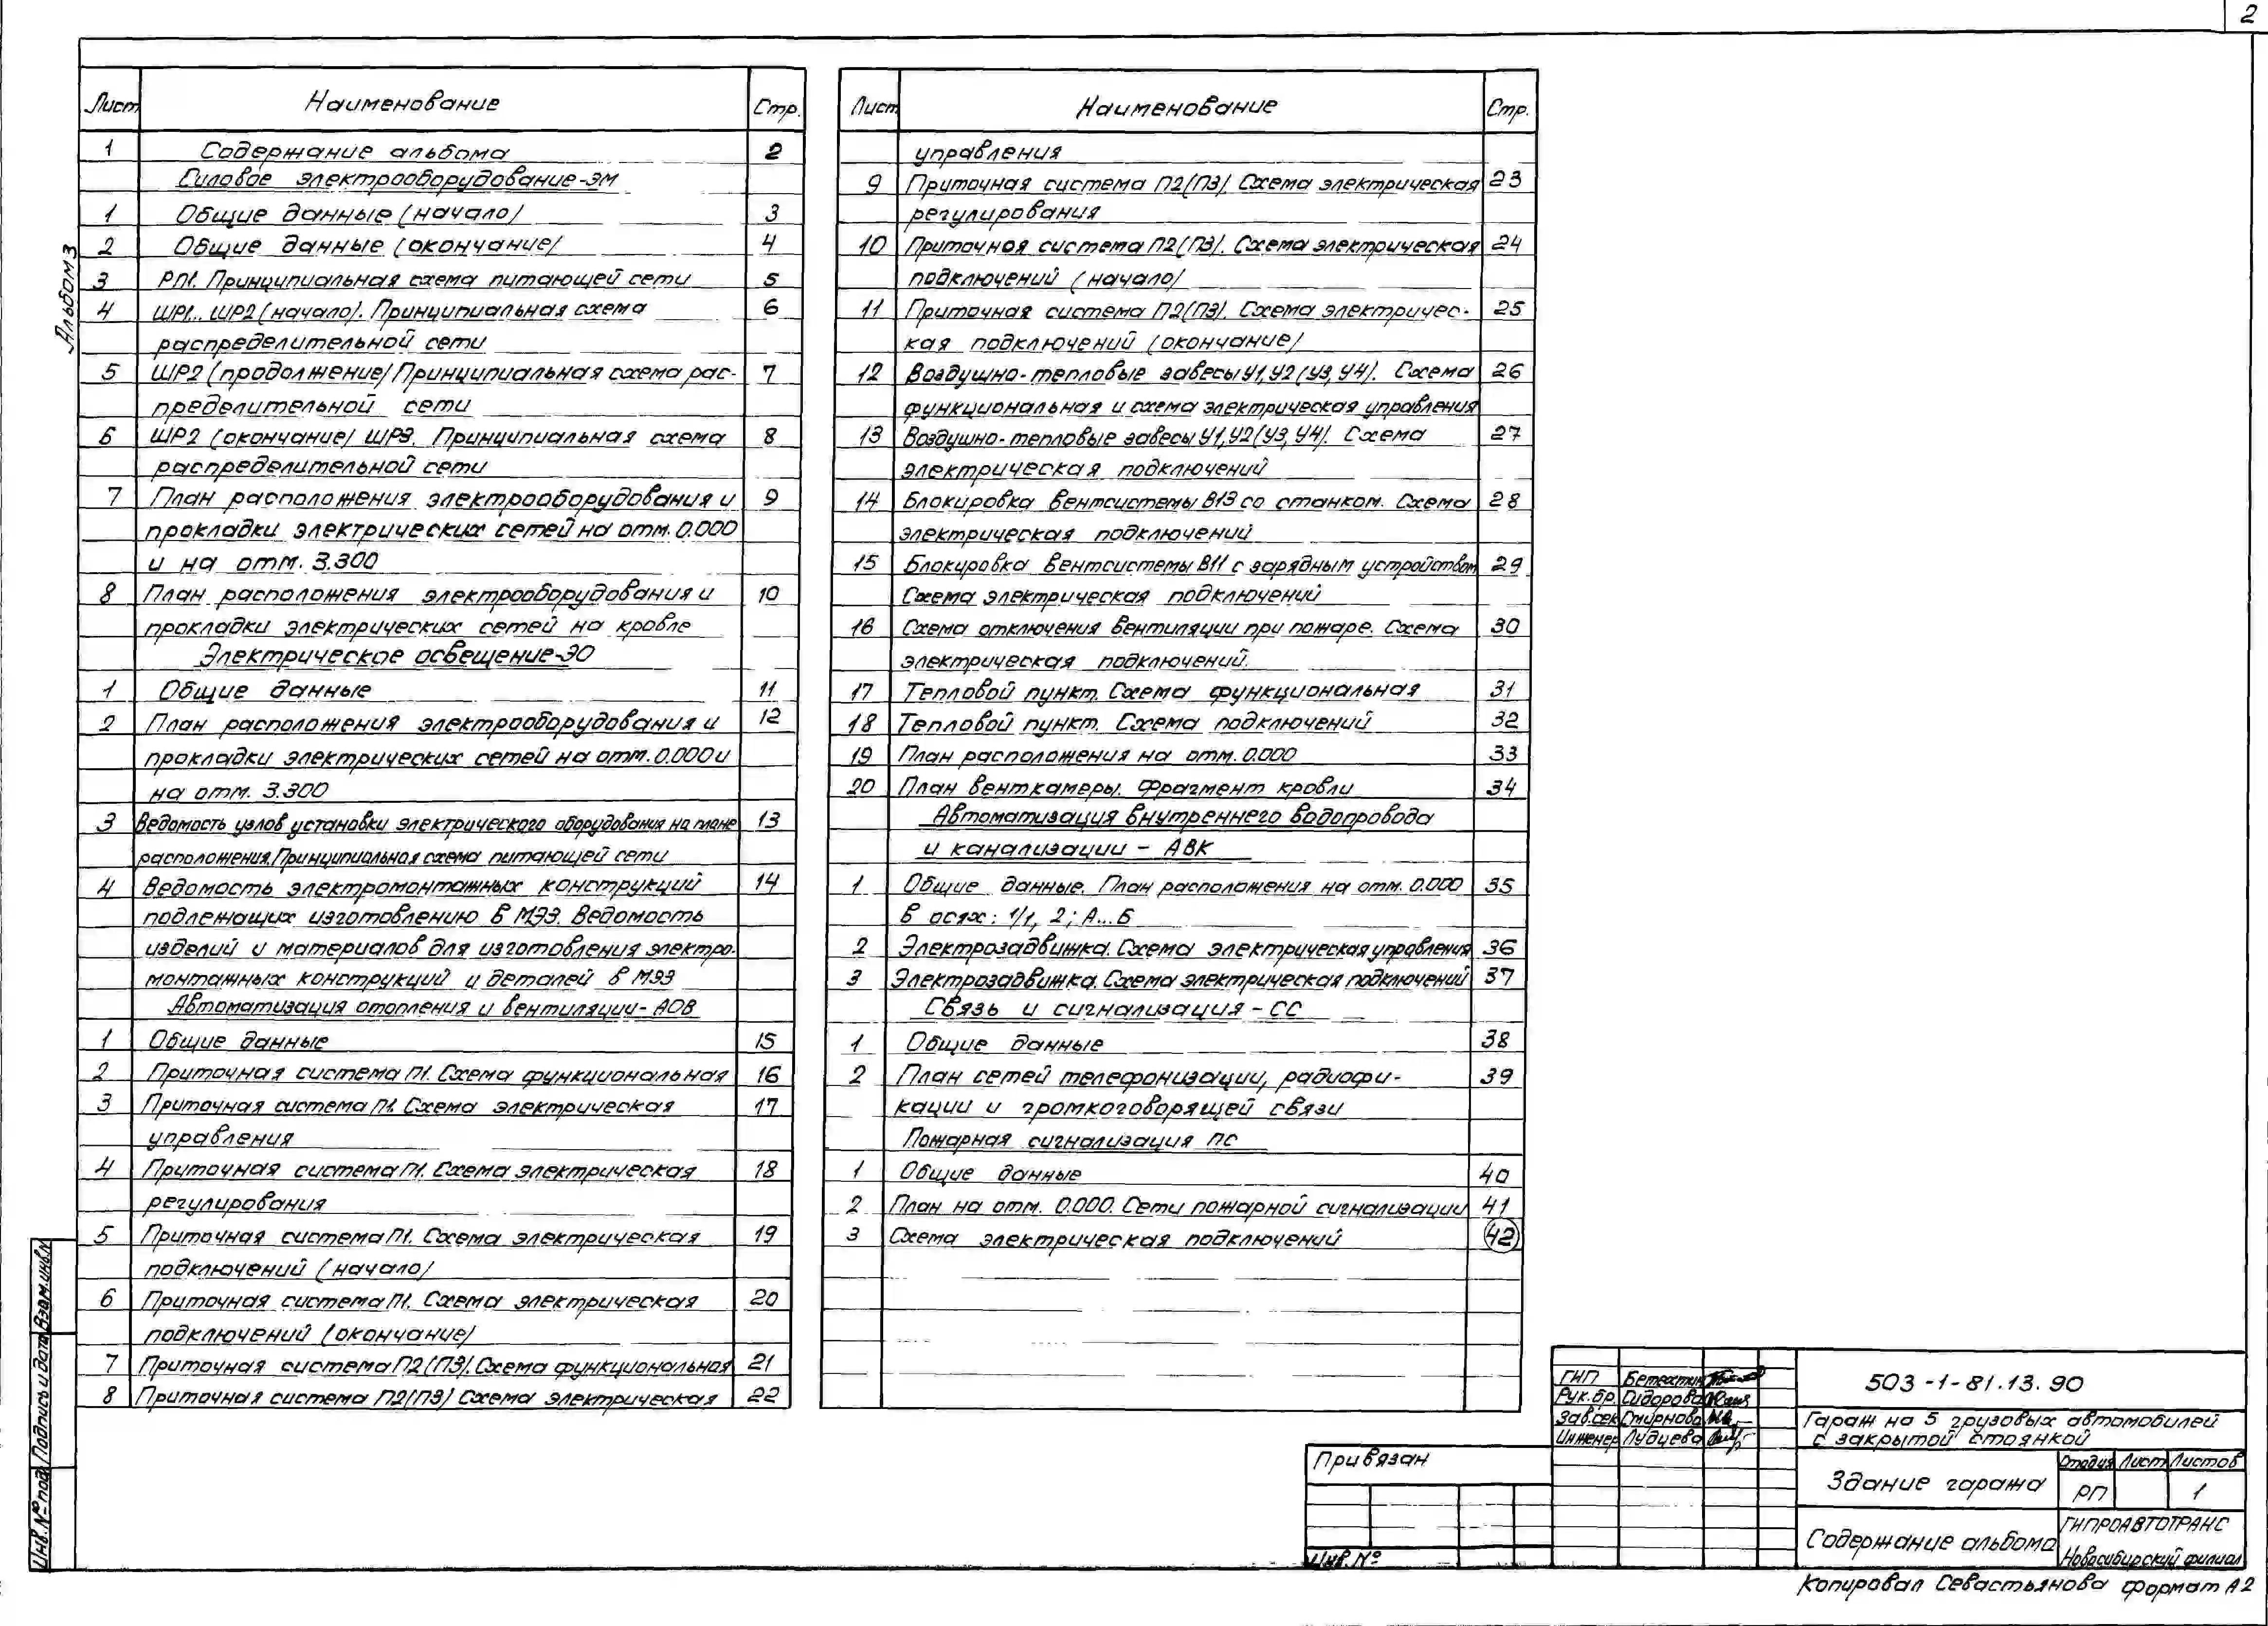 2
Альбом 3
Лист Наименование Стр.
1 Содержание альбома 2
Силовое электрооборудование-ЭМ
1 Общие данные (начало) 3
2 Общие данные (окончание) 4
3 РП1. Принципиальная схема питающей сети 5
4 ШР1... ШР2 (начало). Принципиальная схема 6
распределительной сети
5 ШР2 (продолжение) Принципиальная схема рас- 7
пределительной сети
6 ШР2 (окончание) ШР3. Принципиальная схема 8
распределительной сети
7 План расположения электрооборудования и 9
прокладки электрических сетей на отм. 0.000
и на отм. 3.300
8 План расположения электрооборудования и 10
прокладки электрических сетей на кровле
Электрическое освещение-ЭО
1 Общие данные 11
2 План расположения электрооборудования и 12
прокладки электрических сетей на отм. 0.000 и
на отм. 3.300
3 Ведомость узлов установки электрического оборудования на плане 13
расположения. Принципиальная схема питающей сети
4 Ведомость электромонтажных конструкций 14
подлежащих изготовлению в МЭЗ. Ведомость
изделий и материалов для изготовления электро-
монтажных конструкций и деталей в МЭЗ
Автоматизация отопления и вентиляции-АОВ
1 Общие данные 15
2 Приточная система П1. Схема функциональная 16
3 Приточная система П1. Схема электрическая 17
управления
4 Приточная система П1. Схема электрическая 18
регулирования
5 Приточная система П1. Схема электрическая 19
подключений (начало)
6 Приточная система П1. Схема электрическая 20
подключений (окончание)
7 Приточная система П2(П3). Схема функциональная 21
8 Приточная система П2(П3) Схема электрическая 22
Лист Наименование Стр.
управления
9 Приточная система П2(П3) Схема электрическая 23
регулирования
10 Приточная система П2(П3). Схема электрическая 24
подключений (начало)
11 Приточная система П2(П3). Схема электричес- 25
кая подключений (окончание)
12 Воздушно-тепловые завесы У1, У2 (У3, У4). Схема 26
функциональная и схема электрическая управления
13 Воздушно-тепловые завесы У1, У2 (У3, У4). Схема 27
электрическая подключений
14 Блокировка вентсистемы В13 со станком. Схема 28
электрическая подключений
15 Блокировка вентсистемы В11 с зарядным устройством 29
Схема электрическая подключений
16 Схема отключения вентиляции при пожаре. Схема 30
электрическая подключений.
17 Тепловой пункт. Схема функциональная 31
18 Тепловой пункт. Схема подключений 32
19 План расположения на отм. 0.000 33
20 План венткамеры. Фрагмент кровли 34
Автоматизация внутреннего водопровода
и канализации - АВК
1 Общие данные. План расположения на отм. 0.000 35
в осях: 1/1, 2; А...Б
2 Электрозадвижка. Схема электрическая управления 36
3 Электрозадвижка. Схема электрическая подключений 37
Связь и сигнализация - СС
1 Общие данные 38
2 План сетей телефонизации, радиофи- 39
кации и громкоговорящей связи
Пожарная сигнализация ПС
1 Общие данные 40
2 План на отм. 0.000. Сети пожарной сигнализации 41
3 Схема электрическая подключений 42
Инв. № под. Подпись и дата Взам. инв. №
Привязан
Инв. №
ГИП Бетехтин
Рук. бр. Сидорова
Зав. сек Смирнова
Инженер Лудцева
503-1-81.13.90
Гараж на 5 грузовых автомобилей
с закрытой стоянкой
Здание гаража
Стадия Лист Листов
РП 1
Содержание альбома
ГИПРОАВТОТРАНС
Новосибирский филиал
Копировал Севастьянова Формат А2